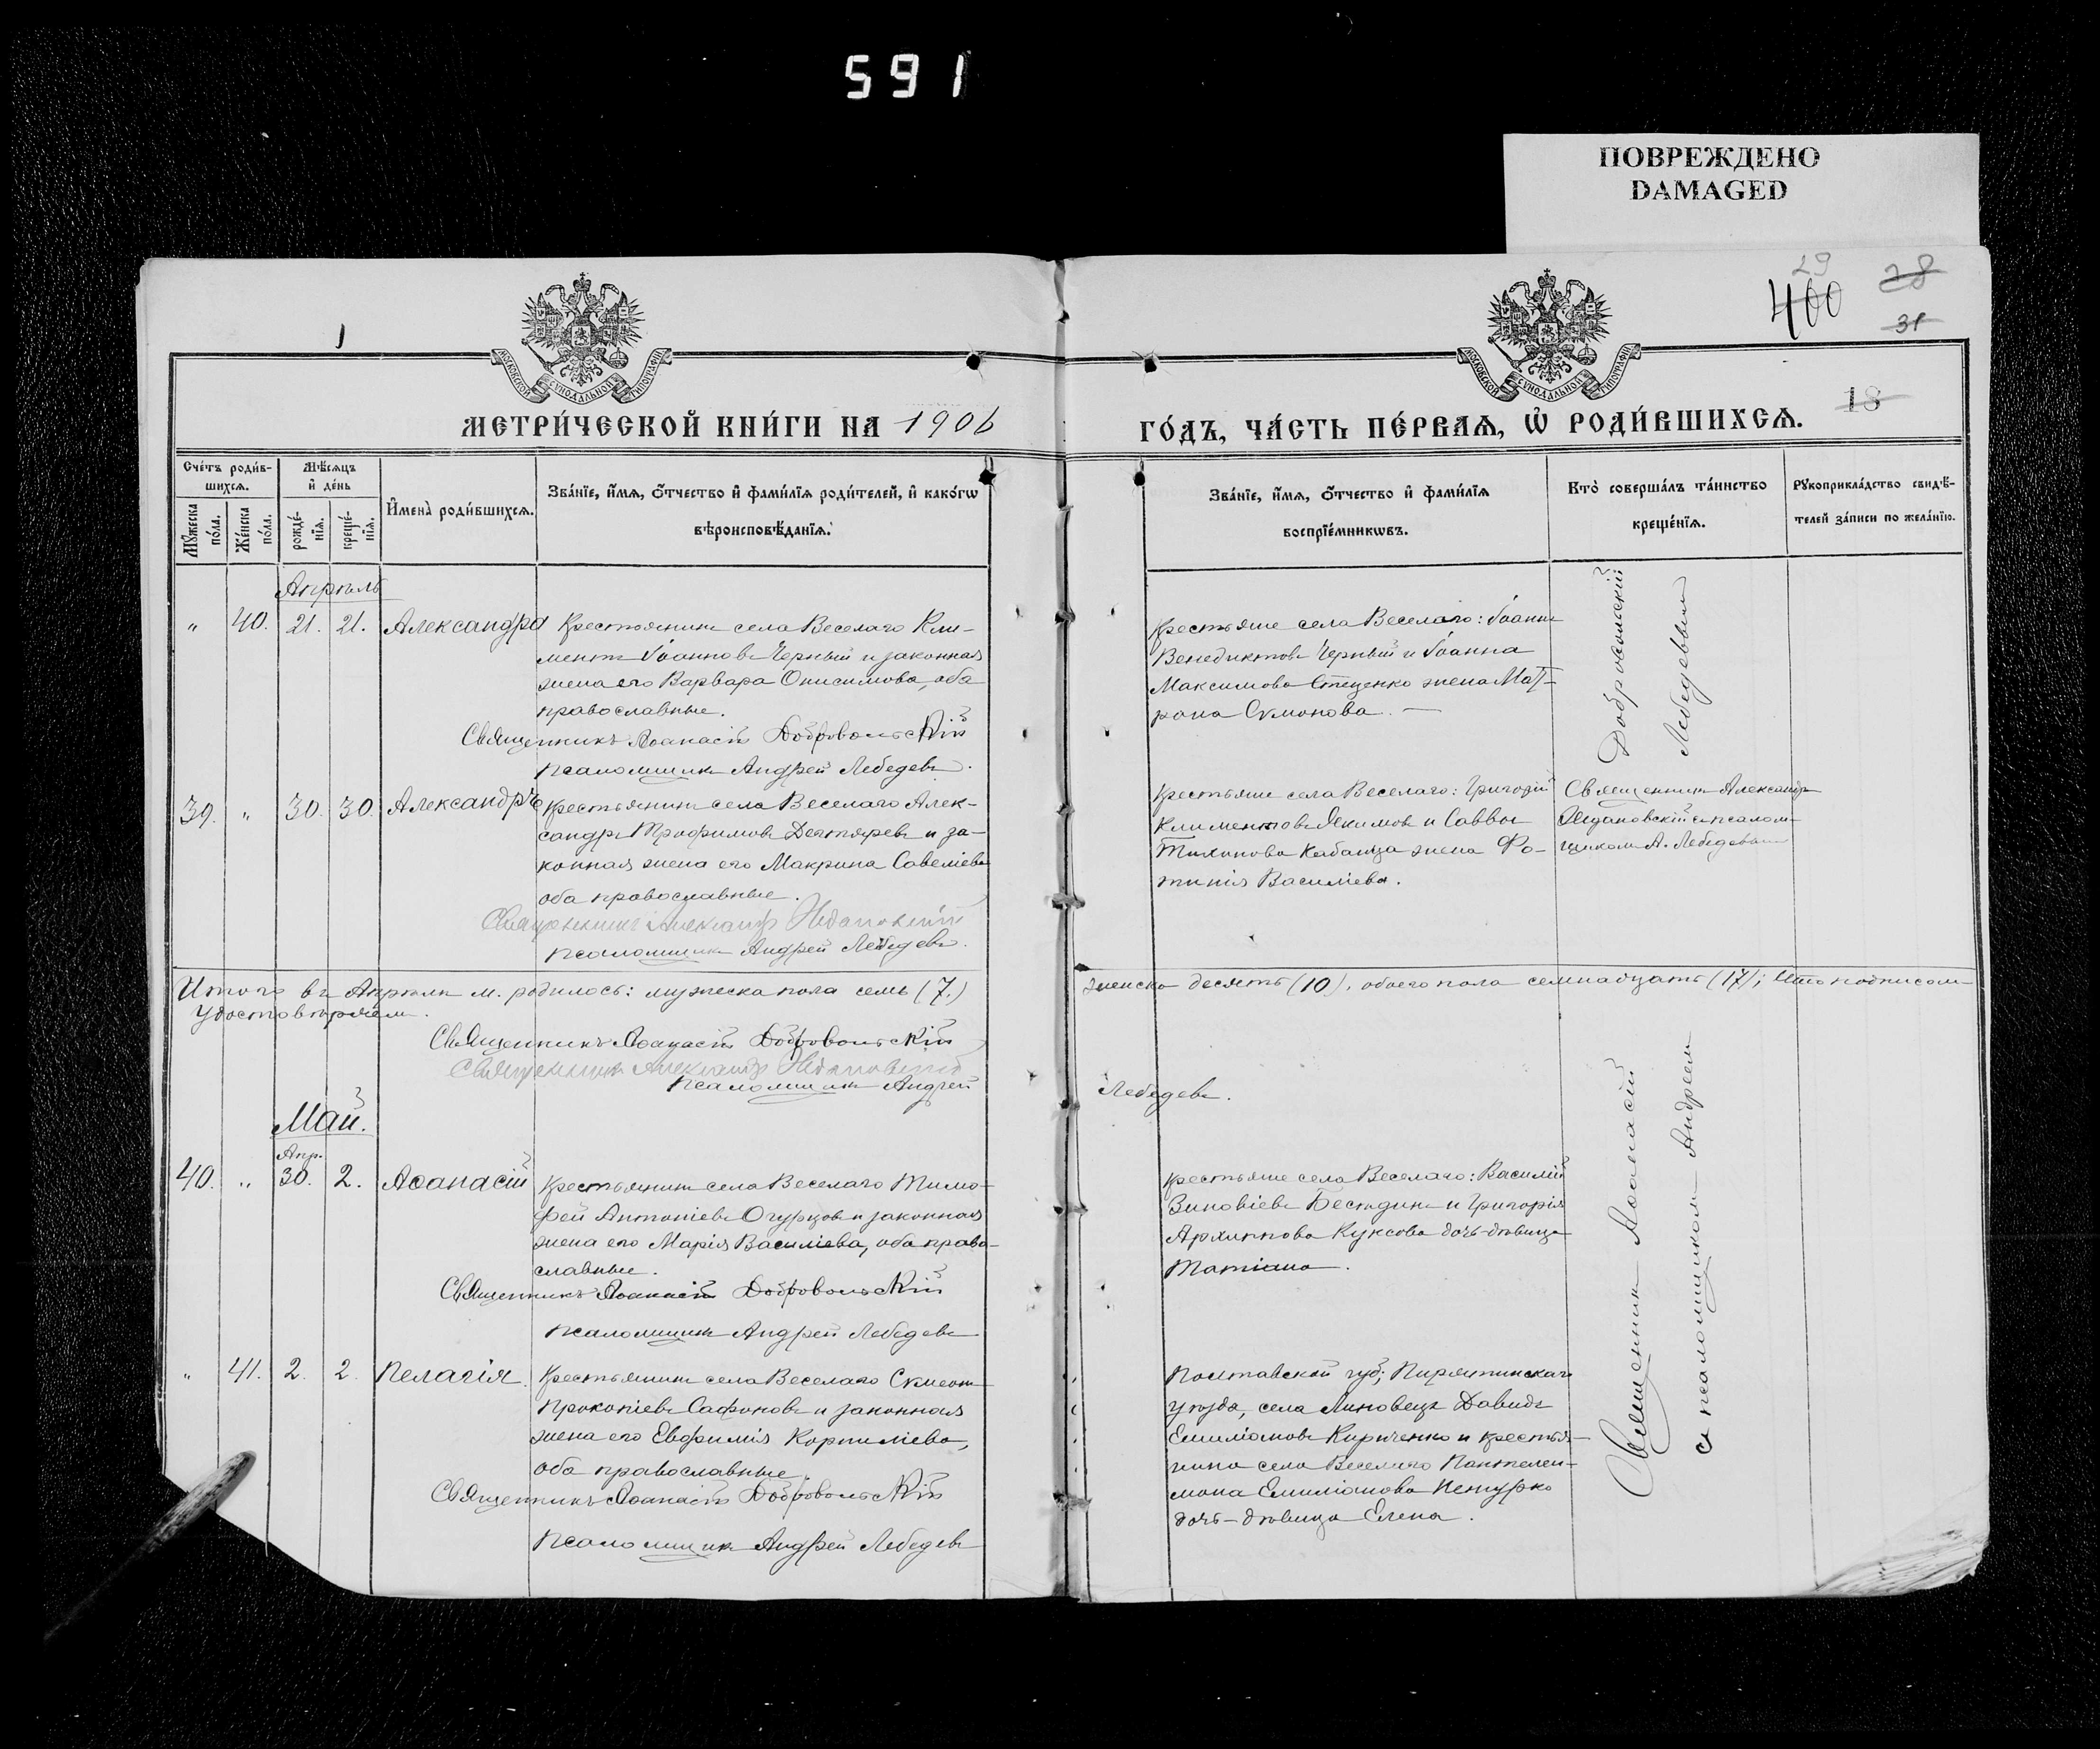 591
ПОВРЕЖДЕНО
DAMAGED
29
28
400
31
18
МОСКОВСКОЙ СУНОДАЛЬНОЙ ТИПОГРАФІИ
МОСКОВСКОЙ СУНОДАЛЬНОЙ ТИПОГРАФІИ
МЕТРИ́ЧЕСКОЙ КНИ́ГИ НА 1906
ГО́ДЪ, ЧА́СТЬ ПЕ́РВАѦ, Ѡ҆ РОДИ́ВШИХСѦ.
Сче́тъ роди́в-
шихсѧ.
Мѣ́сѧцъ
и҆ де́нь
Мꙋ́жеска
по́ла.
Же́нска
по́ла.
рожде́-
нїѧ.
креще́-
нїѧ.
И҆мена̀ роди́вшихсѧ.
Зва́нїе, и҆́мѧ, ѻ҆́тчество и҆ фами́лїѧ роди́телей, и҆ како́гѡ
вѣроисповѣ́данїѧ.
Зва́нїе, и҆́мѧ, ѻ҆́тчество и҆ фами́лїѧ
воспрїе́мникѡвъ.
Кто̀ соверша́лъ та́инство
креще́нїѧ.
Рꙋкоприкла́дство свидѣ́-
телей за́писи по жела́нїю.
Апрѣль
„ 40. 21. 21. Александра
Крестьянинъ села Веселаго Кли-
ментъ Іоанновъ Черный и законная
жена его Варвара Онисимова, оба
православные.
Священникъ Аѳанасій Добровольскій
Псаломщикъ Андрей Лебедевъ.
Крестьяне села Веселаго: Іоаннъ
Венедиктовъ Черный и Іоанна
Максимова Стеценко жена Мат-
рона Симонова. —
Добровольскій
Лебедевымъ
39. „ 30. 30. Александръ
Крестьянинъ села Веселаго Алек-
сандръ Трофимовъ Дегтяревъ и за-
конная жена его Макрина Савеліева
оба православные.
Священникъ Александр Ждановскій
Псаломщикъ Андрей Лебедевъ.
Крестьяне села Веселаго: Григорій
Климентовъ Якимовъ и Саввы
Тихонова Кабанца жена Фо-
тинія Василіева.
Священникъ Александръ
Ждановскій съ псалом-
щикомъ А. Лебедевымъ
Итого въ Апрѣлѣ м. родилось: мужеска пола семь (7.)
женска десять (10), обоего пола семнадцать (17); что подписом
удостовѣряемъ.
Священникъ Аѳанасій Добровольскій
Священникъ Александръ Ждановскій
Псаломщикъ Андрей
Лебедевъ.
Май.
Апр.
40. „ 30. 2. Аѳанасій
Крестьянинъ села Веселаго Тимо-
фей Антоніевъ Огурцовъ и законная
жена его Марія Василіева, оба право-
славные.
Священникъ Аѳанасій Добровольскій
Псаломщикъ Андрей Лебедевъ
Крестьяне села Веселаго: Василій
Зиновіевъ Бесѣдинъ и Григорія
Архиппова Куксова дочь-дѣвица
Татіана.
Священникъ Аѳанасій
съ псаломщикомъ Андреемъ
„ 41. 2. 2. Пелагія.
Крестьянинъ села Веселаго Симеонъ
Прокопіевъ Сафоновъ и законная
жена его Евфимія Корниліева,
оба православные.
Священникъ Аѳанасій Добровольскій
Псаломщикъ Андрей Лебедевъ
Полтавской губ; Пирятинскаго
уѣзда, села Линовецъ Давидъ
Емиліановъ Кириченко и крестья-
нина села Веселаго Пантелеи-
мона Емиліанова Петурко
дочь-дѣвица Елена.